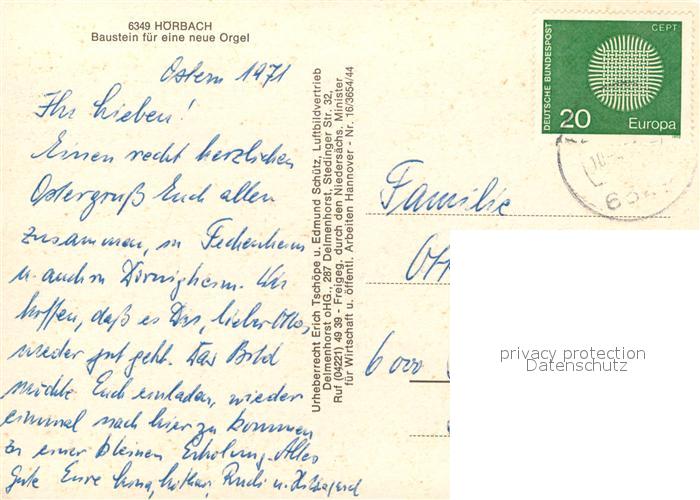 6349 HÖRBACH
Baustein für eine neue Orgel
Ostern 1971
Ihr Lieben!
Einen recht herzlichen
Ostergruß Euch allen
zusammen, in Fechenheim
u. auch in Dörnigheim. Wir
hoffen, daß es Dir, lieber Otto,
wieder gut geht. Das Bild
möchte Euch einladen, wieder
einmal nach hier zu kommen
zu einer kleinen Erholung. Alles
Gute Eure Lothar, Rudi u. Hildegard
Urheberrecht Erich Tschöpe u. Edmund Schütz, Luftbildvertrieb
Delmenhorst oHG., 287 Delmenhorst, Stedinger Str. 32,
Ruf (04221) 49 39 - Freigeg. durch den Niedersächs. Minister
für Wirtschaft u. öffentl. Arbeiten Hannover - Nr. 16/3654/44
DEUTSCHE BUNDESPOST
CEPT
20 Europa
Familie
6000
privacy protection
Datenschutz